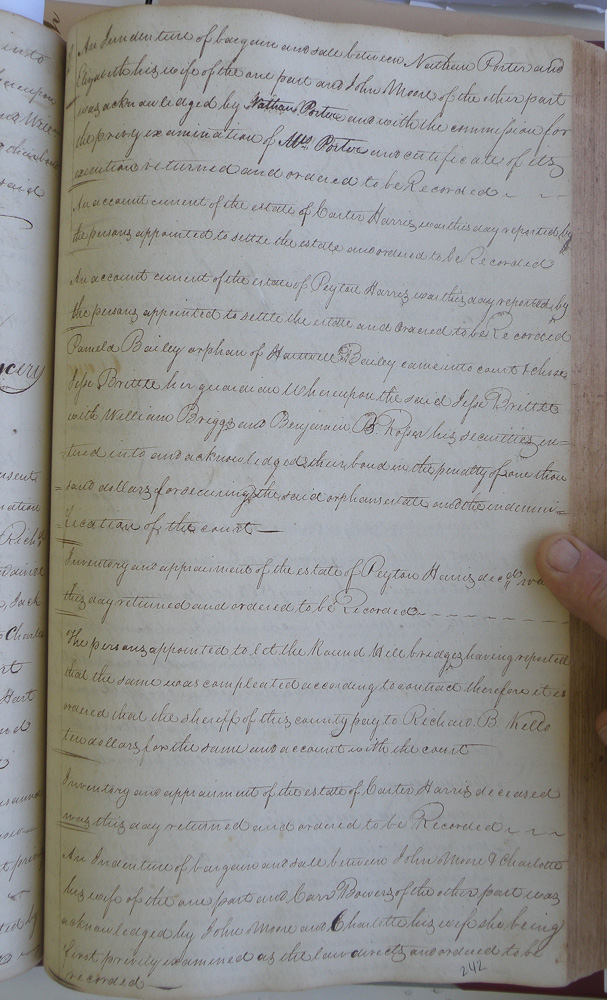 An Indenture of bargain and sale between Nathan Porter and
Elizabeth his wife of the one part and John Moore of the other part
was acknowledged by Nathan Porter and with the commission for
the privy examination of Mrs Porter and certificate of its
execution returned and ordered to be Recorded
An account current of the estate of Carter Harris was this day reported by
the persons appointed to settle the estate and ordered to be Recorded
An account current of the estate of Peyton Harris was this day reported by
the persons appointed to settle the estate and ordered to be Recorded
Pamela Bailey orphan of Bailey came into court & chose
Jesse Brittle her guardian Whereupon the said Jesse Brittle
with William Briggs and Benjamin B Roser his securities en=
=tered into and acknowledged their bond in the penalty of one thou
=sand dollars for securing the said orphans estate and the indemni=
=fication of the court
Inventory and appraisment of the estate of Peyton Harris decd was
this day returned and ordered to be Recorded
The persons appointed to let the Round Hill bridge having reported
that the same was compleated according to contract therefore it is
ordered that the sheriff of this county pay to Richard B. Kello
ten dollars for the same and account with the court
Inventory and appraisment of the estate of Carter Harris deceased
was this day returned and ordered to be Recorded
An Indenture of bargain and sale between John Moore & Charlotte
his wife of the one part and Carr Bowers of the other part was
acknowledged by John Moore and Charlotte his wife she being
first privily examined as the law directs and ordered to be
recorded
242